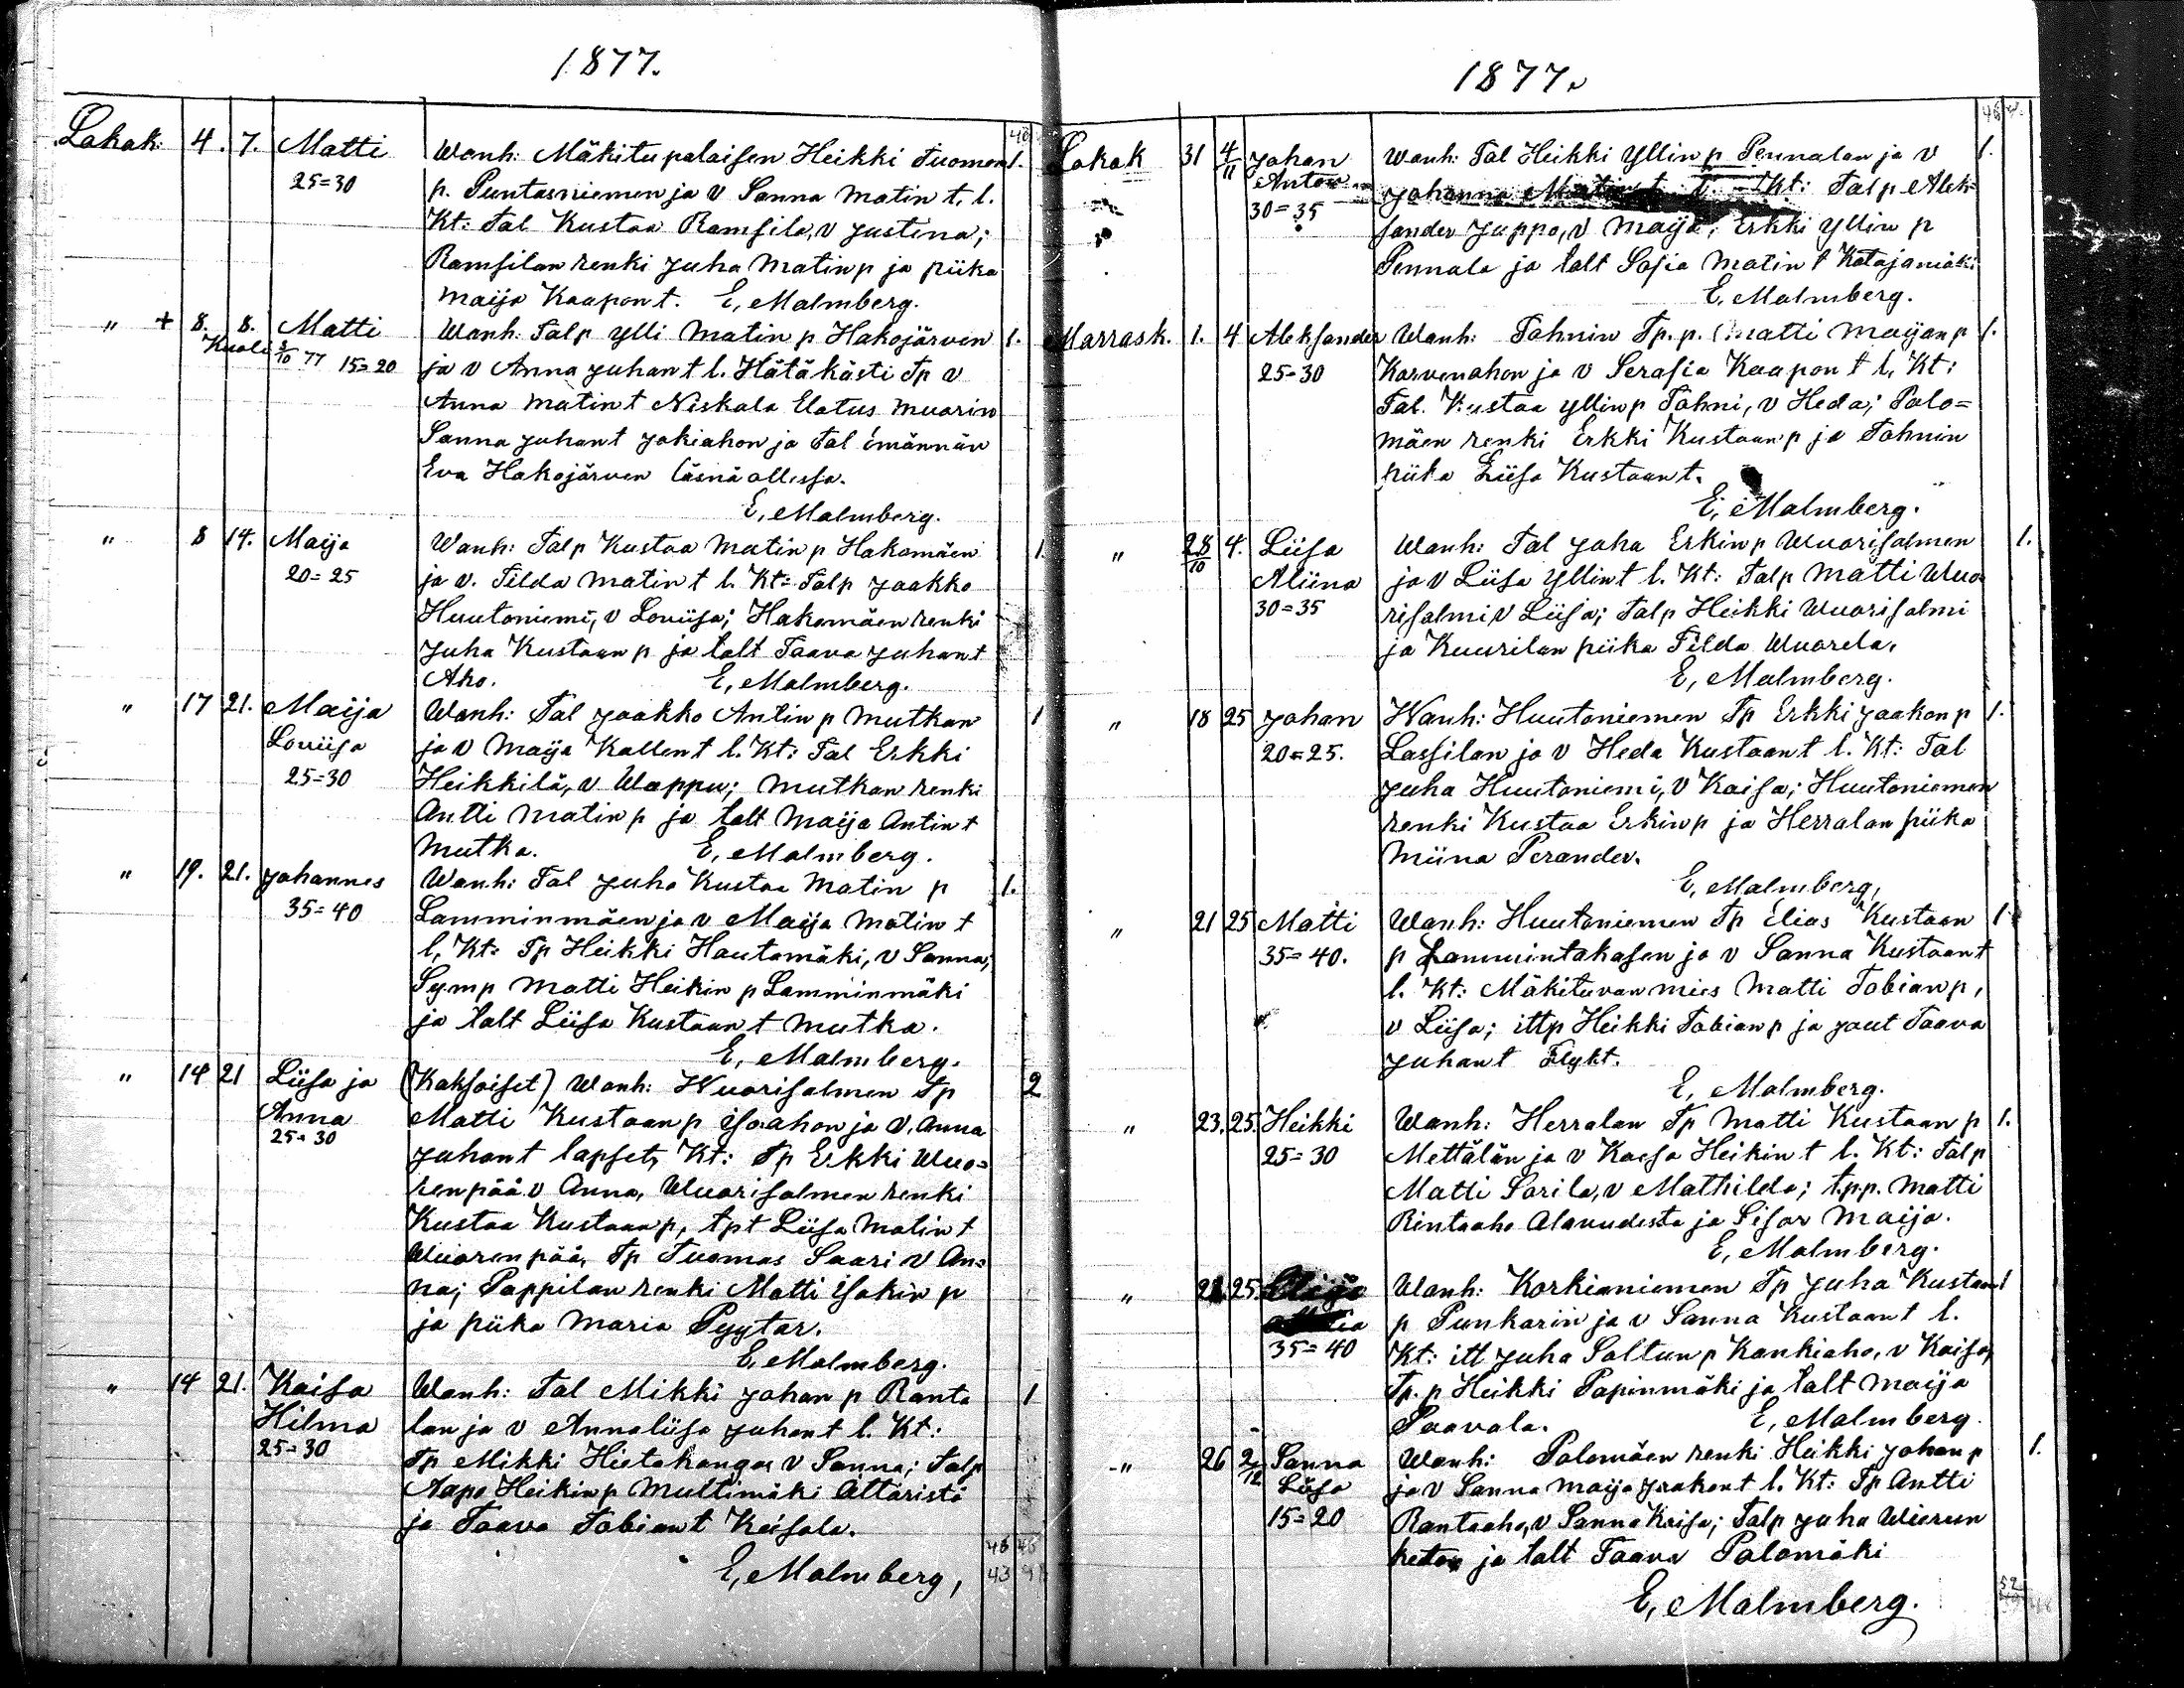 1877.
Lokak. 4. 7. Matti Wanh: Mäkitupalaisen Heikki Tuomon 1.
25=30 p. Puntasniemen ja v Sanna Matin t. l.
Kt: Tal Kustaa Ramsila, v Justina;
Ramsilan renki Juha Matin p ja piika
Maija Kaapon t. E, Malmberg.
" + 8. 8. Matti Wanh. Talp Ylli Matin p Hakojärven 1.
Kuoli 8/10 77 15=20 ja v Anna Juhan t l. Hätäkasti Tp v
Anna Matin t Niskala Elatus muorin
Sanna Juhan t Jokiahon ja Tal emännän
Eva Hakojärven läsnä ollessa.
E, Malmberg.
" 8 14. Maija Wanh: Talp Kustaa Matin p Hakomäen 1.
20=25 ja v. Tilda Matin t l. Kt: Talp Jaakko
Huutoniemi, v Loviisa; Hakomäen renki
Juha Kustaan p ja talt Taava Juhan t
Aho. E, Malmberg.
" 17 21. Maija Wanh: Tal Jaakko Antin p Mutkan 1
Loviisa ja v Maija Kallen t l. Kt: Tal Erkki
25=30 Heikkilä, v Wappu; Mutkan renki
Antti Matin p ja talt Maija Antin t
Mutka. E, Malmberg.
" 19. 21. Johannes Wanh: Tal Juho Kustaa Matin p 1.
35=40 Lamminmäen ja v Maija Matin t
l, Kt: Tp Heikki Hautamäki, v Sanna;
Symp Matti Heikin p Lamminmäki
ja talt Liisa Kustaan t Mutka.
E, Malmberg.
" 14 21 Liisa ja (Kaksoiset) Wanh: Wuorisalmen Tp 2
Anna Matti Kustaan p Isoahon ja v. Anna
25=30 Juhan t lapset, Kt: Tp Erkki Wuo=
renpää v Anna, Wuorisalmen renki
Kustaa Kustaan p, tpt Liisa Matin t
Wuorenpää, Tp Tuomas Saari v An=
na; Pappilan renki Matti Isakin p
ja piika Maria Pyytar.
E, Malmberg.
" 14 21. Kaisa Wanh: Tal Mikki Johan p Ranta 1
Hilma lan ja v Annaliisa Juhan t l. Kt:
25=30 Tp Mikki Hietakangas v Sanna; Talp
Aapo Heikin p Multimäki Ättäristä
ja Taava Tobiant Keisala.
E, Malmberg,
1877.
Lokak 31 4/11 Johan Wanh: Tal Heikki Yllin p Pennalan ja v 1.
Anton Johanna Kt: Talp Alek=
30=35 sander Juppo, v Maija; Erkki Yllin p
Pennala ja talt Sofia Matin t Katajamäki
E, Malmberg.
Marrask. 1. 4 Aleksander Wanh: Tohnin Tp. p. Matti Maijan p 1.
25=30 Korvenahon ja v Serafia Kaapon t l, Kt:
Tal. Kustaa Yllin p Tohni, v Heda; Palo=
mäen renki Erkki Kustaan p ja Tohnin
piika Liisa Kustaan t.
E, Malmberg.
" 28/10 4. Liisa Wanh: Tal Juha Erkin p Wuorisalmen 1.
Aliina ja v Liisa Yllin t l. Kt: Talp Matti Wuo
30=35 risalmi v Liisa; Talp Heikki Wuorisalmi
ja Kuurilan piika Tilda Wuorela.
E, Malmberg.
" 18 25 Johan Wanh: Huutoniemen Tp Erkki Jaakon p 1.
20=25. Lassilan ja v Heda Kustaan t l. Kt: Tal
Juha Huutoniemi, v Kaisa; Huutoniemen
renki Kustaa Erkin p ja Herralan piika
Miina Perander.
E, Malmberg,
" 21 25 Matti Wanh: Huutoniemen Tp Elias Kustaan 1
35=40. p Lammintakasen ja v Sanna Kustaant
l. Kt: Mäkituvan mies Matti Tobian p,
v Liisa; ittp Heikki Tobian p ja Taava
Juhan t Flykt.
E, Malmberg.
" 23. 25. Heikki Wanh: Herralan Tp Matti Kustaan p 1.
25=30 Mettälän ja v Kaisa Heikin t l. Kt: Talp
Matti Sorila, v Mathilda; t.p.p. Matti
Rintaaho Alavudesta ja Sisar Maija.
E, Malmberg.
" 25. Wanh: Korkianiemen Tp Juha Kustaan 1
p Punkarin ja v Sanna Kustaan t l.
35=40 Kt: itt Juha Saltun p Kankiaho, v Kaisa,
Tp. p Heikki Papinmäki ja talt Maija
Paavala. E, Malmberg.
" 26 2/12 Sanna Wanh: Palomäen renki Heikki Johan p 1.
Liisa ja v Sanna Maija Jaakon t l. Kt: Tp Antti
15=20 Rantaaho, v Sanna Kaisa; Talp Juha Wieren
keto ja talt Taava Palomäki
E, Malmberg.